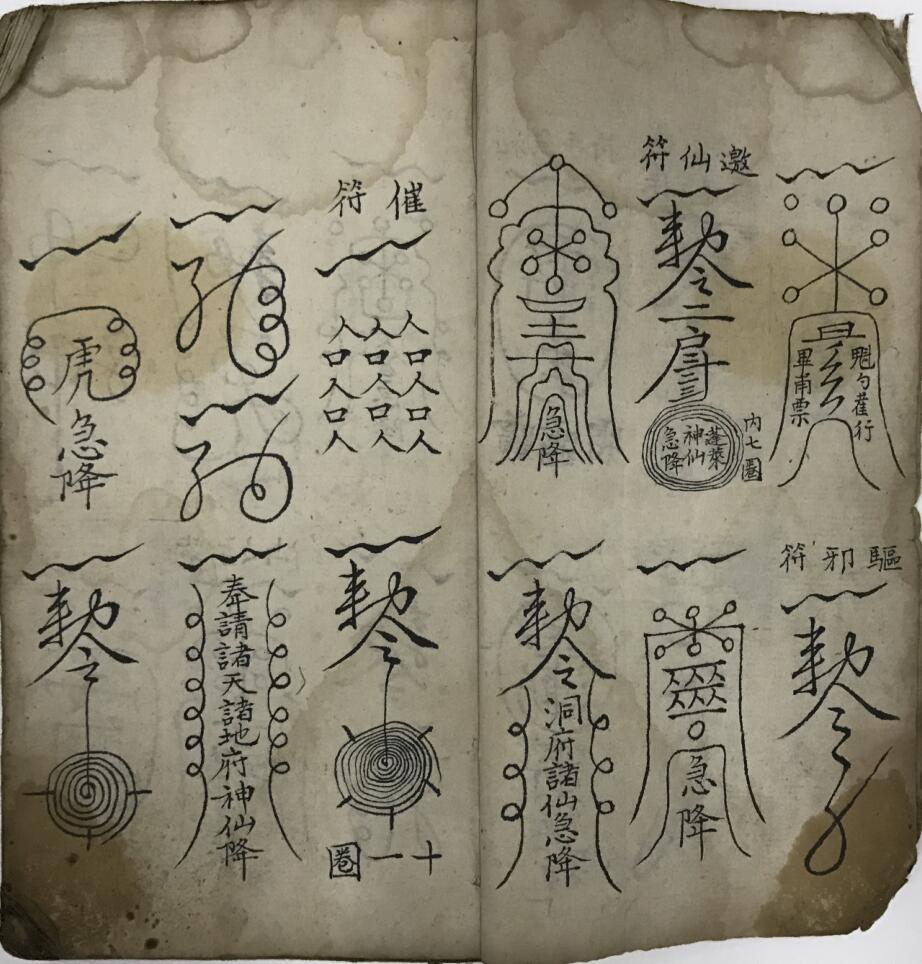 魁勺雚行
畢甫票
邀仙符
勅令
蓬萊
神仙
急降
内七圈
急降
驅邪符
勅令
急降
勅令
洞府諸仙急降
催符
人口人口人
人口人口人
人口人口人
虎
急降
勅令
十一圈
奉請諸天諸地府神仙降
勅令